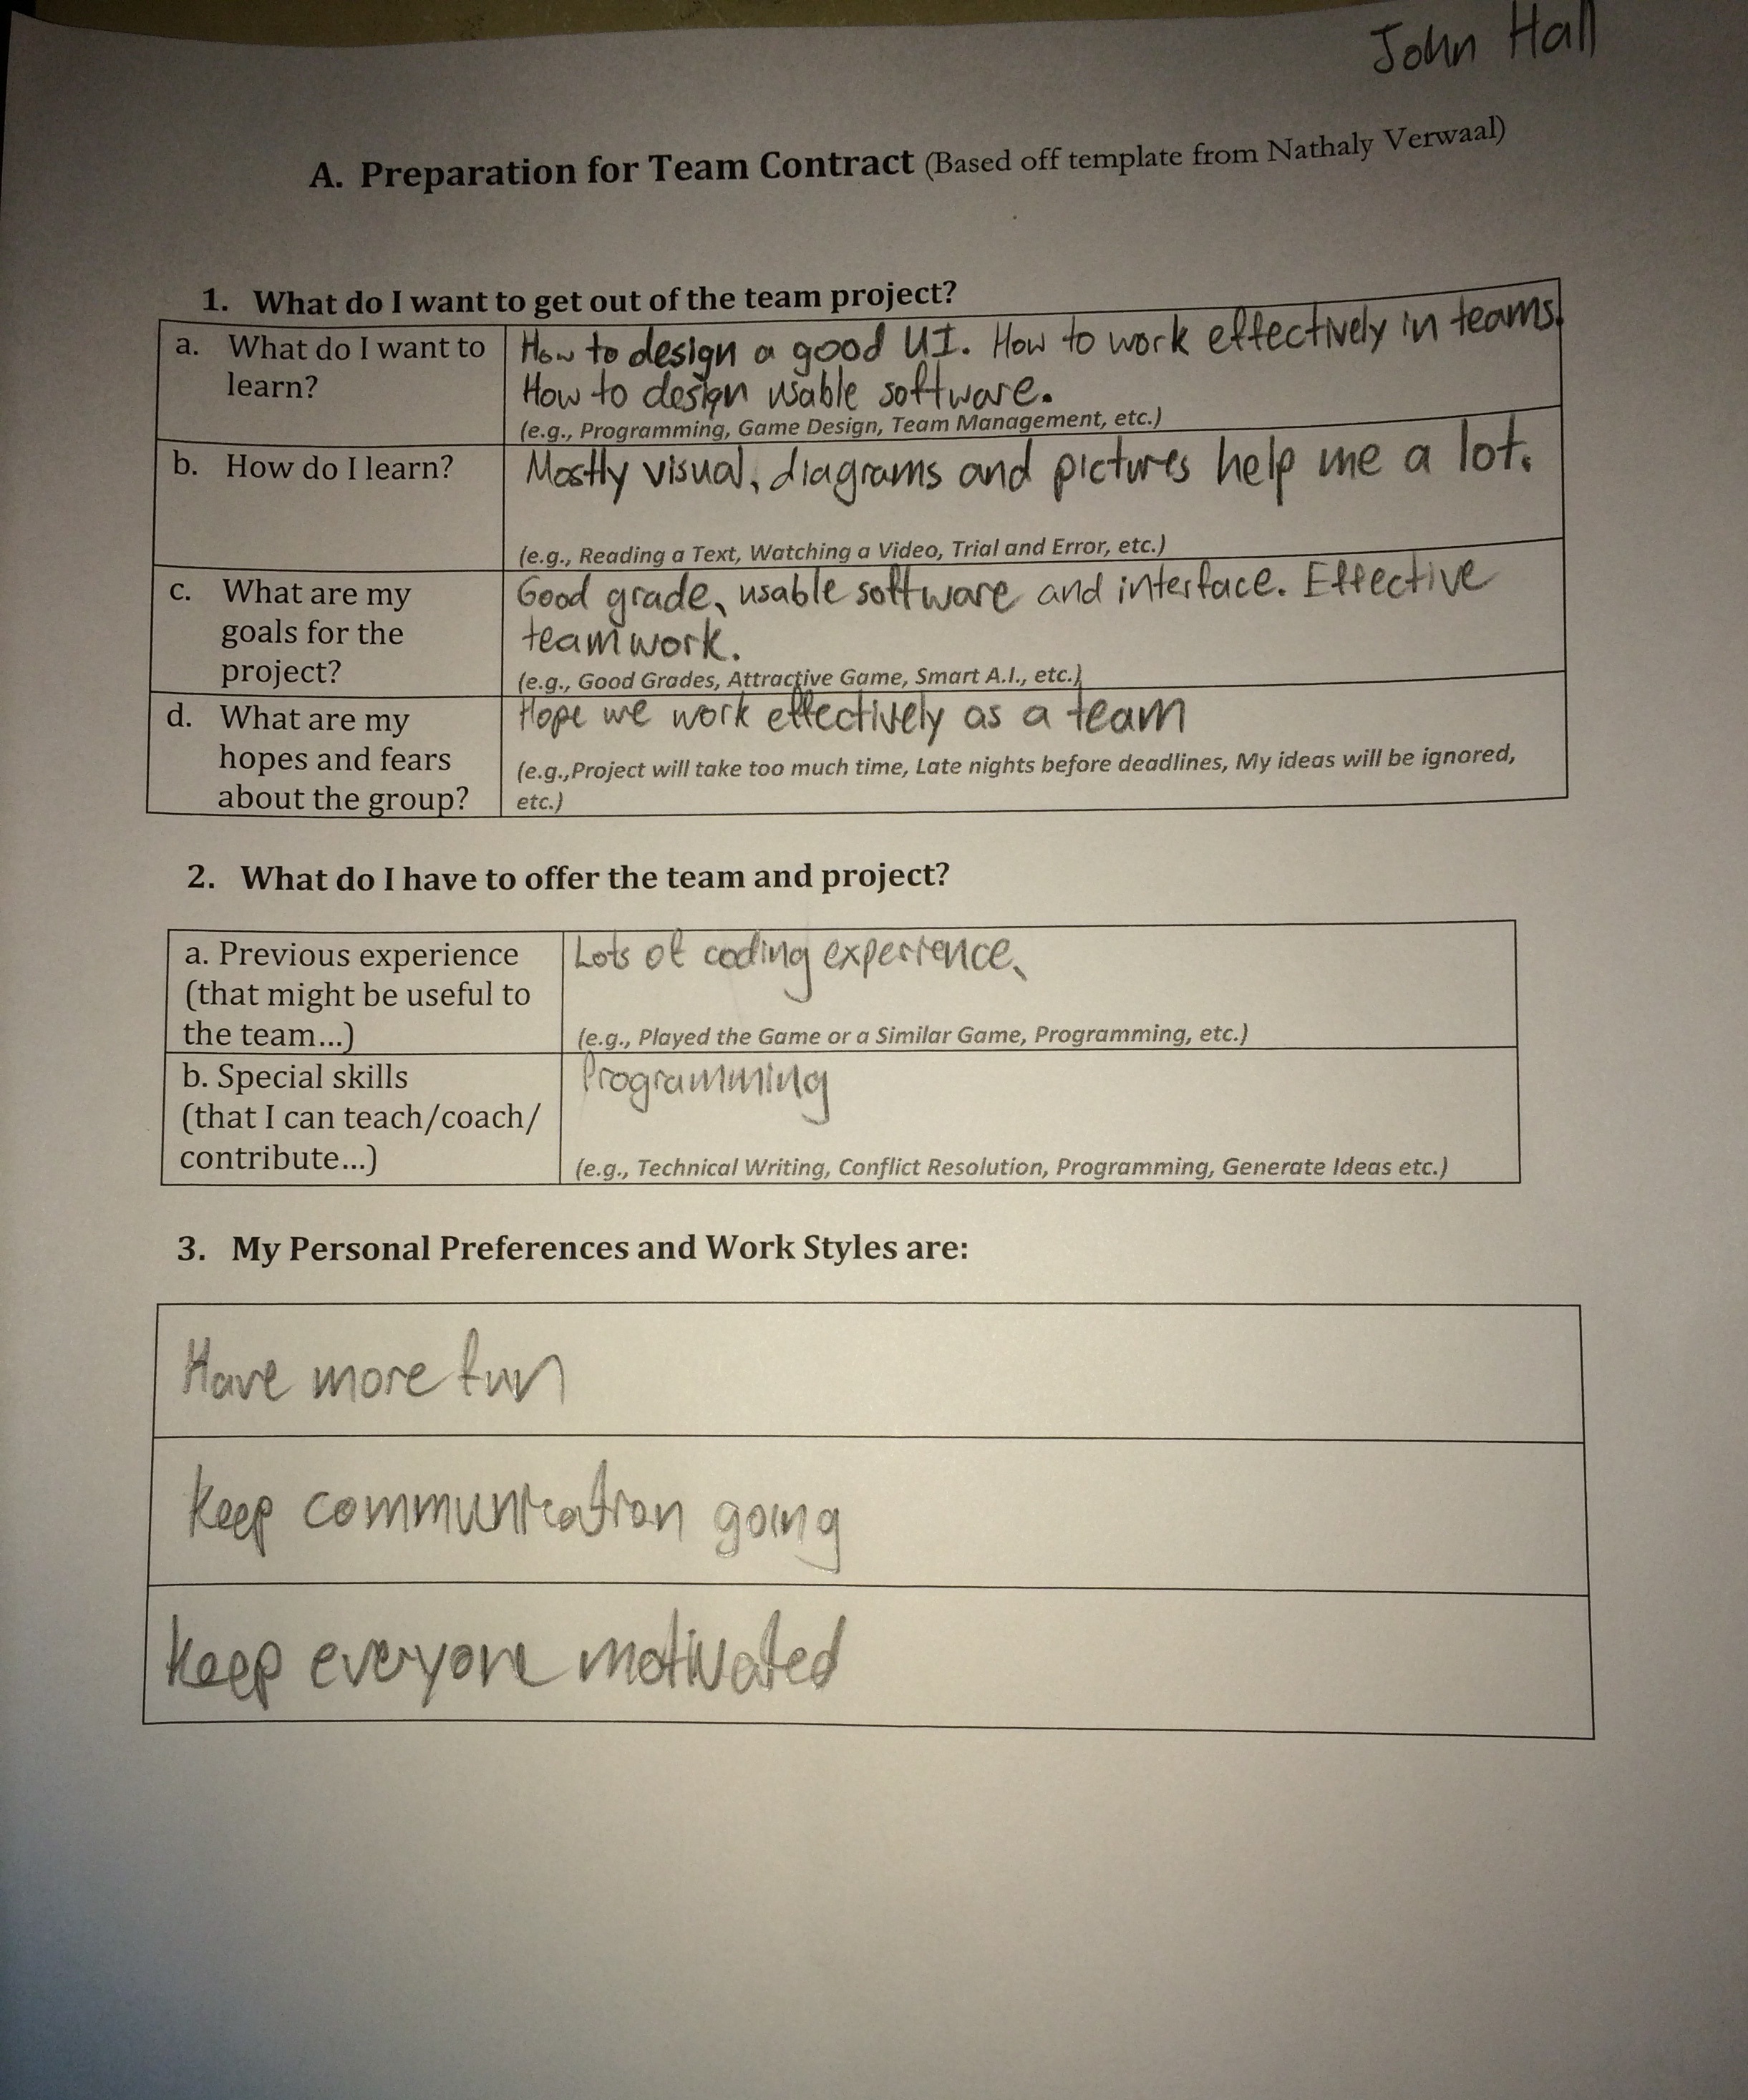 John Hall
A. Preparation for Team Contract (Based off template from Nathaly Verwaal)
1. What do I want to get out of the team project?
a. What do I want to
learn?
How to design a good UI. How to work effectively in teams.
How to design usable software.
(e.g., Programming, Game Design, Team Management, etc.)
b. How do I learn?
Mostly visual, diagrams and pictures help me a lot.
(e.g., Reading a Text, Watching a Video, Trial and Error, etc.)
c. What are my
goals for the
project?
Good grade, usable software and interface. Effective
teamwork.
(e.g., Good Grades, Attractive Game, Smart A.I., etc.)
d. What are my
hopes and fears
about the group?
Hope we work effectively as a team
(e.g.,Project will take too much time, Late nights before deadlines, My ideas will be ignored,
etc.)
2. What do I have to offer the team and project?
a. Previous experience
(that might be useful to
the team...)
Lots of coding experience.
(e.g., Played the Game or a Similar Game, Programming, etc.)
b. Special skills
(that I can teach/coach/
contribute...)
Programming
(e.g., Technical Writing, Conflict Resolution, Programming, Generate Ideas etc.)
3. My Personal Preferences and Work Styles are:
Have more fun
keep communication going
keep everyone motivated